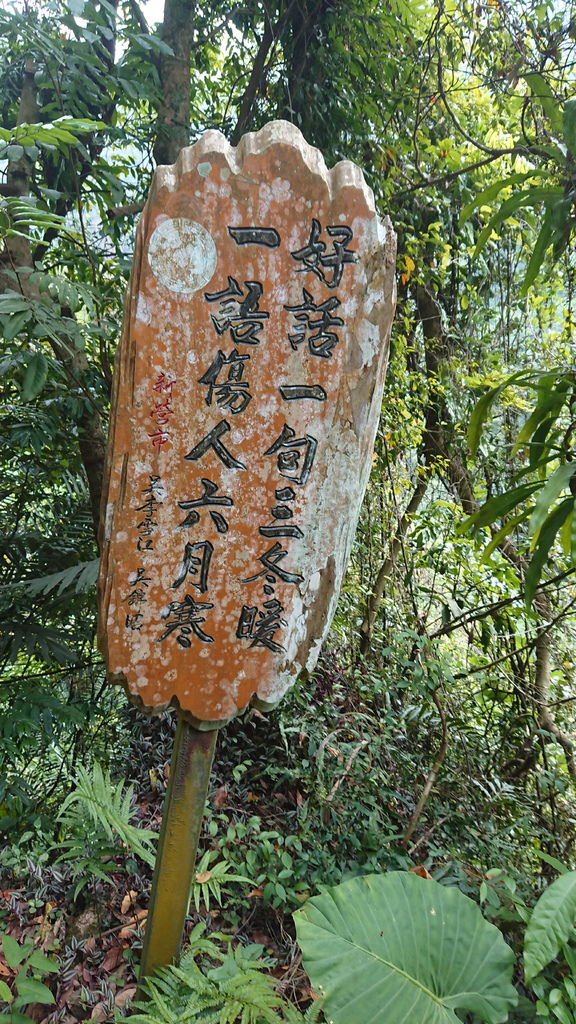 好話一句三冬暖
一語傷人六月寒
新營市
吳李雪江